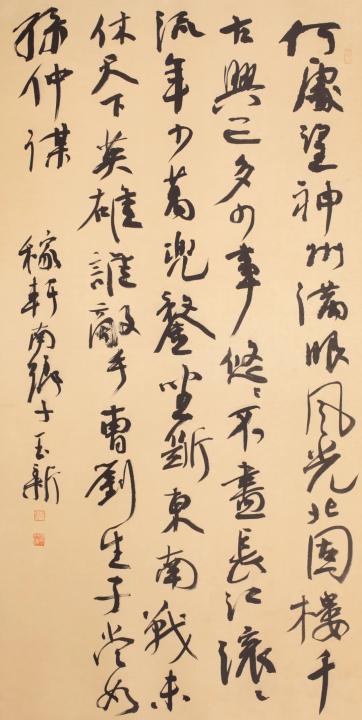 何處望神州滿眼風光北固樓千
古興亡多少事悠〻不盡長江滾〻
流年少萬兜鍪坐斷東南戰未
休天下英雄誰敵手曹劉生子當如
孫仲謀
稼軒南鄉子